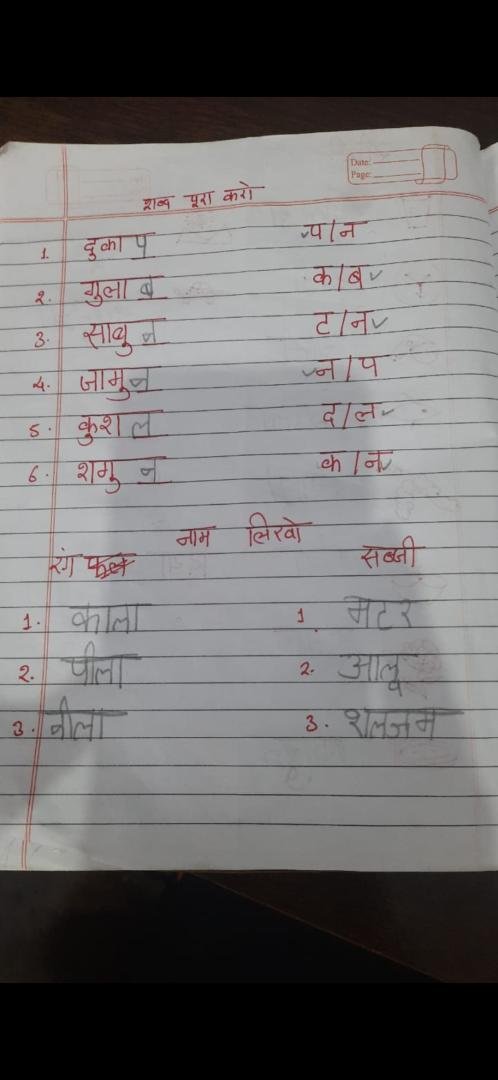 Date:
Page:
शब्द पूरा करो
1. दुकाप ✓प/न
2. गुलाब क/ब✓
3. साबुन ट/न✓
4. जामुन ✓न/प
5. कुशल द/ल✓
6. शगुन क/न✓
नाम लिखो
रंग सब्जी
1. काला 1. मटर
2. पीला 2. आलू
3. नीला 3. शलजम